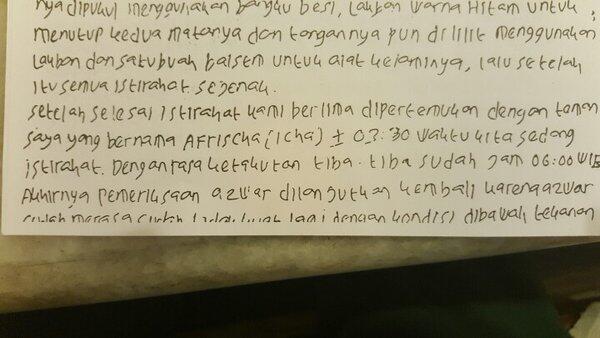 nya dipukul menggunakan bangku besi, lakban warna Hitam untuk
menutup kedua matanya dan tangannya pun di lilit menggunakan
lakban dan satu buah balsem untuk alat kelaminya, lalu setelah
itu semua istirahat sejenak.
setelah selesai istirahat kami berlima dipertemukan dengan teman
saya yang bernama Afrischa (Icha) ± 03:30 waktu kita sedang
istirahat. Dengan rasa ketakutan tiba-tiba sudah jam 06:00 WIB
Akhirnya pemeriksaan azwar dilanjutkan kembali karena azwar
sudah merasa sudah tidak kuat lagi dengan kondisi dibawah tekanan